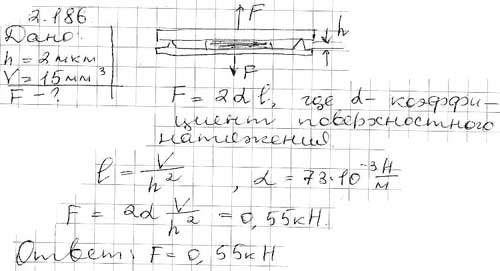 2.186
Дано:
h = 2 мкм
V = 15 мм³
F - ?
F
h
F
F = 2αl, где α - коэффи-
циент поверхностного
натяжения.
l = V/h² , α = 73·10⁻³ Н/м
F = 2α V/h² = 0,55кН.
Ответ: F = 0,55кН